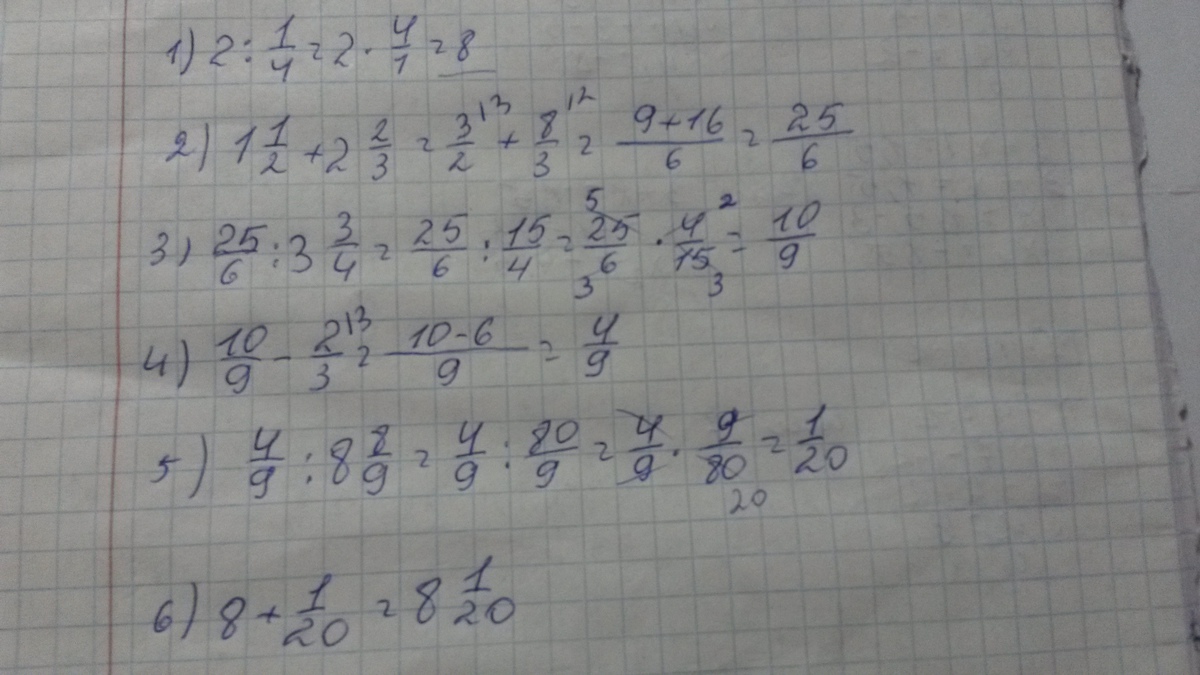 1) 2 : 1/4 = 2 · 4/1 = 8
2) 1 1/2 + 2 2/3 = 3/2 \3 + 8/3 \2 = (9+16)/6 = 25/6
3) 25/6 : 3 3/4 = 25/6 : 15/4 = 25/6 5 3 · 4/15 2 3 = 10/9
4) 10/9 - 2/3 \3 = (10-6)/9 = 4/9
5) 4/9 : 8 8/9 = 4/9 : 80/9 = 4/9 · 9/80 20 = 1/20
6) 8 + 1/20 = 8 1/20